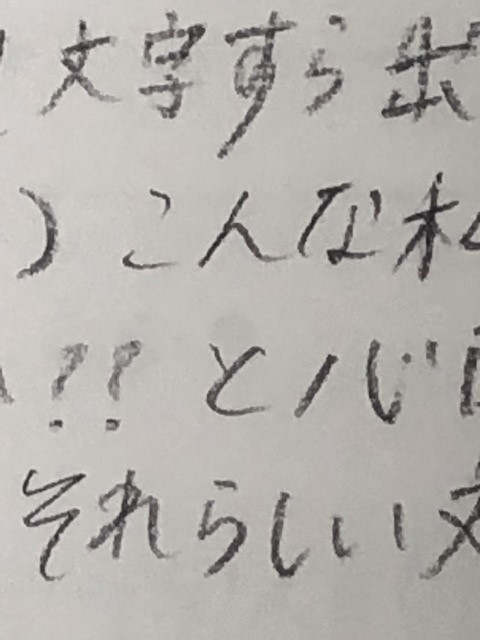 文字すら出
）こんな私
!! と心配
それらしい文